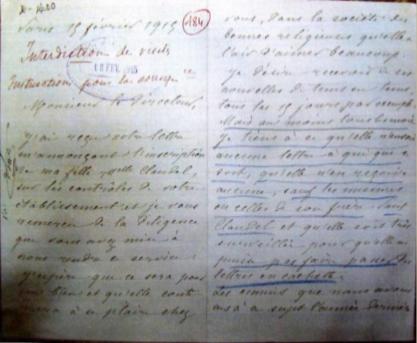 Paris 15 février 1915
184
Interdiction de
Instruction pour la
18 FEV. 1915
Monsieur le Directeur,
J'ai reçu votre lettre
m'annonçant l'inscription
de ma fille, Claudel,
sur les contrôles de votre
établissement et je vous
remercie de la diligence
que vous avez mise à
nous rendre ce service.
J'espère que ce sera pour
bien et qu'elle
à se plaire chez
vous, dans la société des
bonnes religieuses qu'elle
a l'air d'aimer beaucoup.
Je désire recevoir de ses
nouvelles de temps en temps,
tous les 15 jours par exemple
Mais au moins tous les mois
Je tiens à ce qu'elle n'envoie
aucune lettre à qui que ce
soit, qu'elle n'en reçoive
aucune, sauf les miennes
ou celles de son frère, Paul
Claudel et qu'elle soit très
surveillée pour qu'elle ne
puisse pas faire passer des
lettres en cachette.
Les ennuis que nous avons
eus à ce sujet l'année dernière